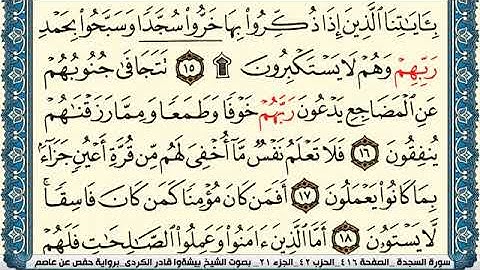 بِـَٔايَٰتِنَا ٱلَّذِينَ إِذَا ذُكِّرُوا۟ بِهَا خَرُّوا۟ سُجَّدًا وَسَبَّحُوا۟ بِحَمْدِ
رَبِّهِمْ وَهُمْ لَا يَسْتَكْبِرُونَ ۩ ١٥ تَتَجَافَىٰ جُنُوبُهُمْ
عَنِ ٱلْمَضَاجِعِ يَدْعُونَ رَبَّهُمْ خَوْفًا وَطَمَعًا وَمِمَّا رَزَقْنَٰهُمْ
يُنفِقُونَ ١٦ فَلَا تَعْلَمُ نَفْسٌ مَّآ أُخْفِىَ لَهُم مِّن قُرَّةِ أَعْيُنٍ جَزَآءًۢ
بِمَا كَانُوا۟ يَعْمَلُونَ ١٧ أَفَمَن كَانَ مُؤْمِنًا كَمَن كَانَ فَاسِقًا ۚ
لَّا يَسْتَوُۥنَ ١٨ أَمَّا ٱلَّذِينَ ءَامَنُوا۟ وَعَمِلُوا۟ ٱلصَّٰلِحَٰتِ فَلَهُمْ
سورة السجدة _الصفحة ٤١٦_ الحزب ٤٢_ الجزء ٢١_ بصوت الشيخ بيشةوا قادر الكردى_ برواية حفص عن عاصم